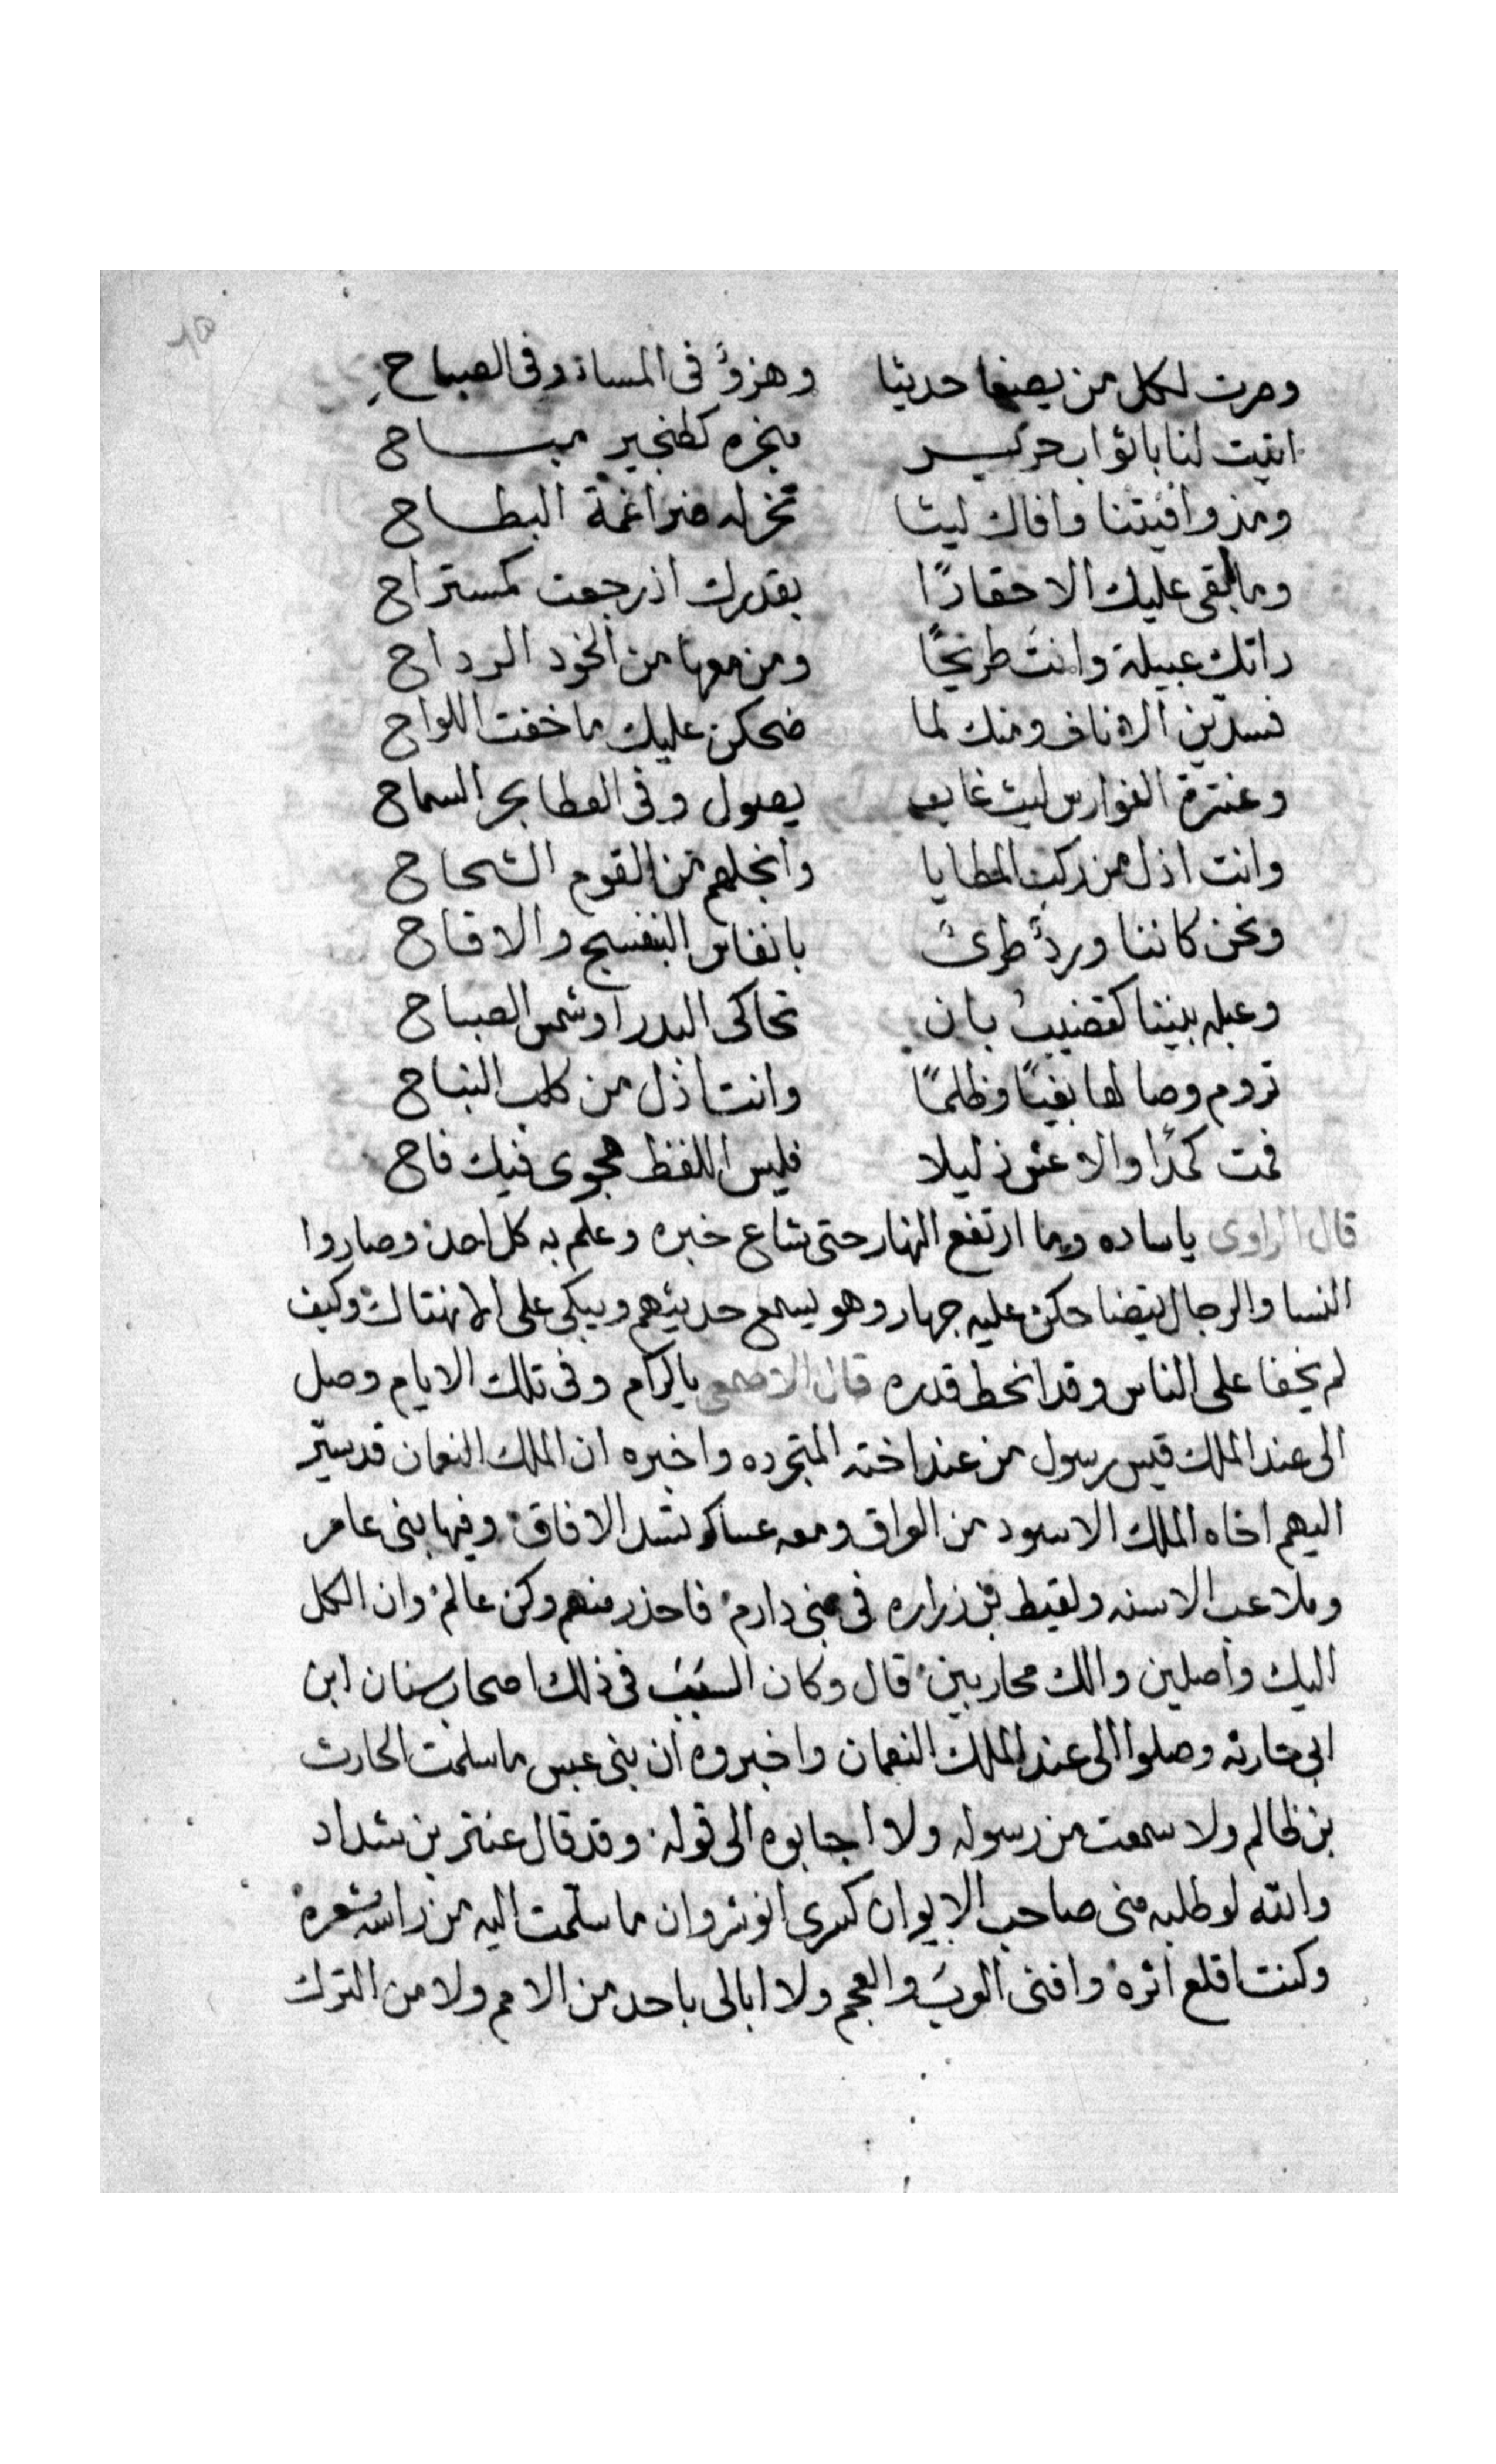 وصرت لكل من يصغا حديثا وهزؤ في المساء وفي الصباح
اتيت لنا باثواب حرير مباح
ومذ وافيتنا وافاك ليثا تخر له ضراغمة البطاح
وما ابقى عليك الا حقارًا بقدرك اذ رجعت كمستراح
راتك عبيلة وانت طريحًا ومن معها من الخود الرداح
منك لما ضحكن عليك ما خفت اللواح
وعنترة الفوارس ليث غاب يصول وفي العطا بحر السماح
وانت اذل من ركب المطايا وانجلهم من القوم الشحاح
ونحن كاننا وردٌ طرىٌ بانفاس البنفسج والاقاح
وعبله بيننا كقضيب بان تحاكى البدر او شمس الصباح
تروم وصالها بغيًا وظلمًا وانت اذل من كلب النباح
فمت كمدًا والا عش ذليلا فليس اللفظ هجوى فيك فاح
قال الراوى ياساده وما ارتفع النهار حتى شاع خبره وعلم به كل احد وصاروا
النسا والرجال يتضاحكن عليه جهار وهو يسمع حديثهم ويبكى على الانهتاك وكيف
لم يخفا على الناس وقد انحط قدره قال الاصمعى ياكرام وفى تلك الايام وصل
الى عند الملك قيس رسول من عند اخته المتجرده واخبره ان الملك النعمان قد سيّر
اليهم اخاه الملك الاسود من العراق ومعه عساكر تسد الافاق وفيها بنى عامر
وملاعب الاسنه ولقيط بن زراره فى بنى دارم فاحذر منهم وكن عالم وان الكل
اليك واصلين والك محاربين قال وكان السبب فى ذلك اصحاب سنان ابن
ابى حارثه وصلوا الى عند الملك النعمان واخبروه ان بنى عبس ما سلمت الحارث
بن ظالم ولا سمعت من رسوله ولا اجابوه الى قوله وقد قال عنتر بن شداد
والله لو طلبه منى صاحب الايوان كسرى انوشروان ما سلّمت اليه من راسه شعره
وكنت اقلع اثره وافنى العرب والعجم ولا ابالى باحد من الامم ولا من الترك